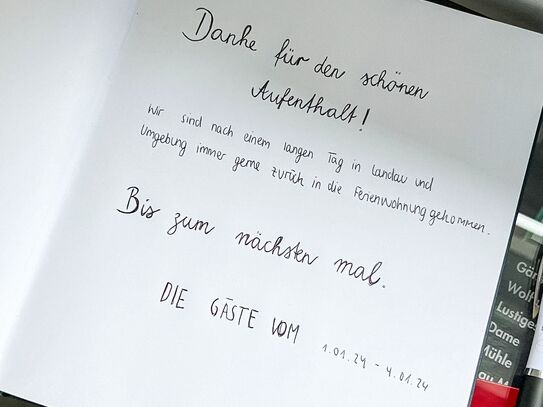 Danke für den schönen
Aufenthalt!
Wir sind nach einem langen Tag in Landau und
Umgebung immer gerne zurück in die Ferienwohnung gekommen.
Bis zum nächsten mal.
DIE GÄSTE VOM 1.01.24 - 4.01.24
Gär
Wolf
Lustige
Dame
Mühle